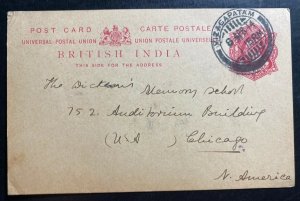 POST CARD CARTE POSTALE
UNIVERSAL POSTAL UNION UNION POSTALE UNIVERSELLE
BRITISH INDIA
THIS SIDE FOR THE ADDRESS
VIZAGAPATAM
The Dickson's Memory School
752. Auditorium Building
(U.S.A) Chicago
N. America